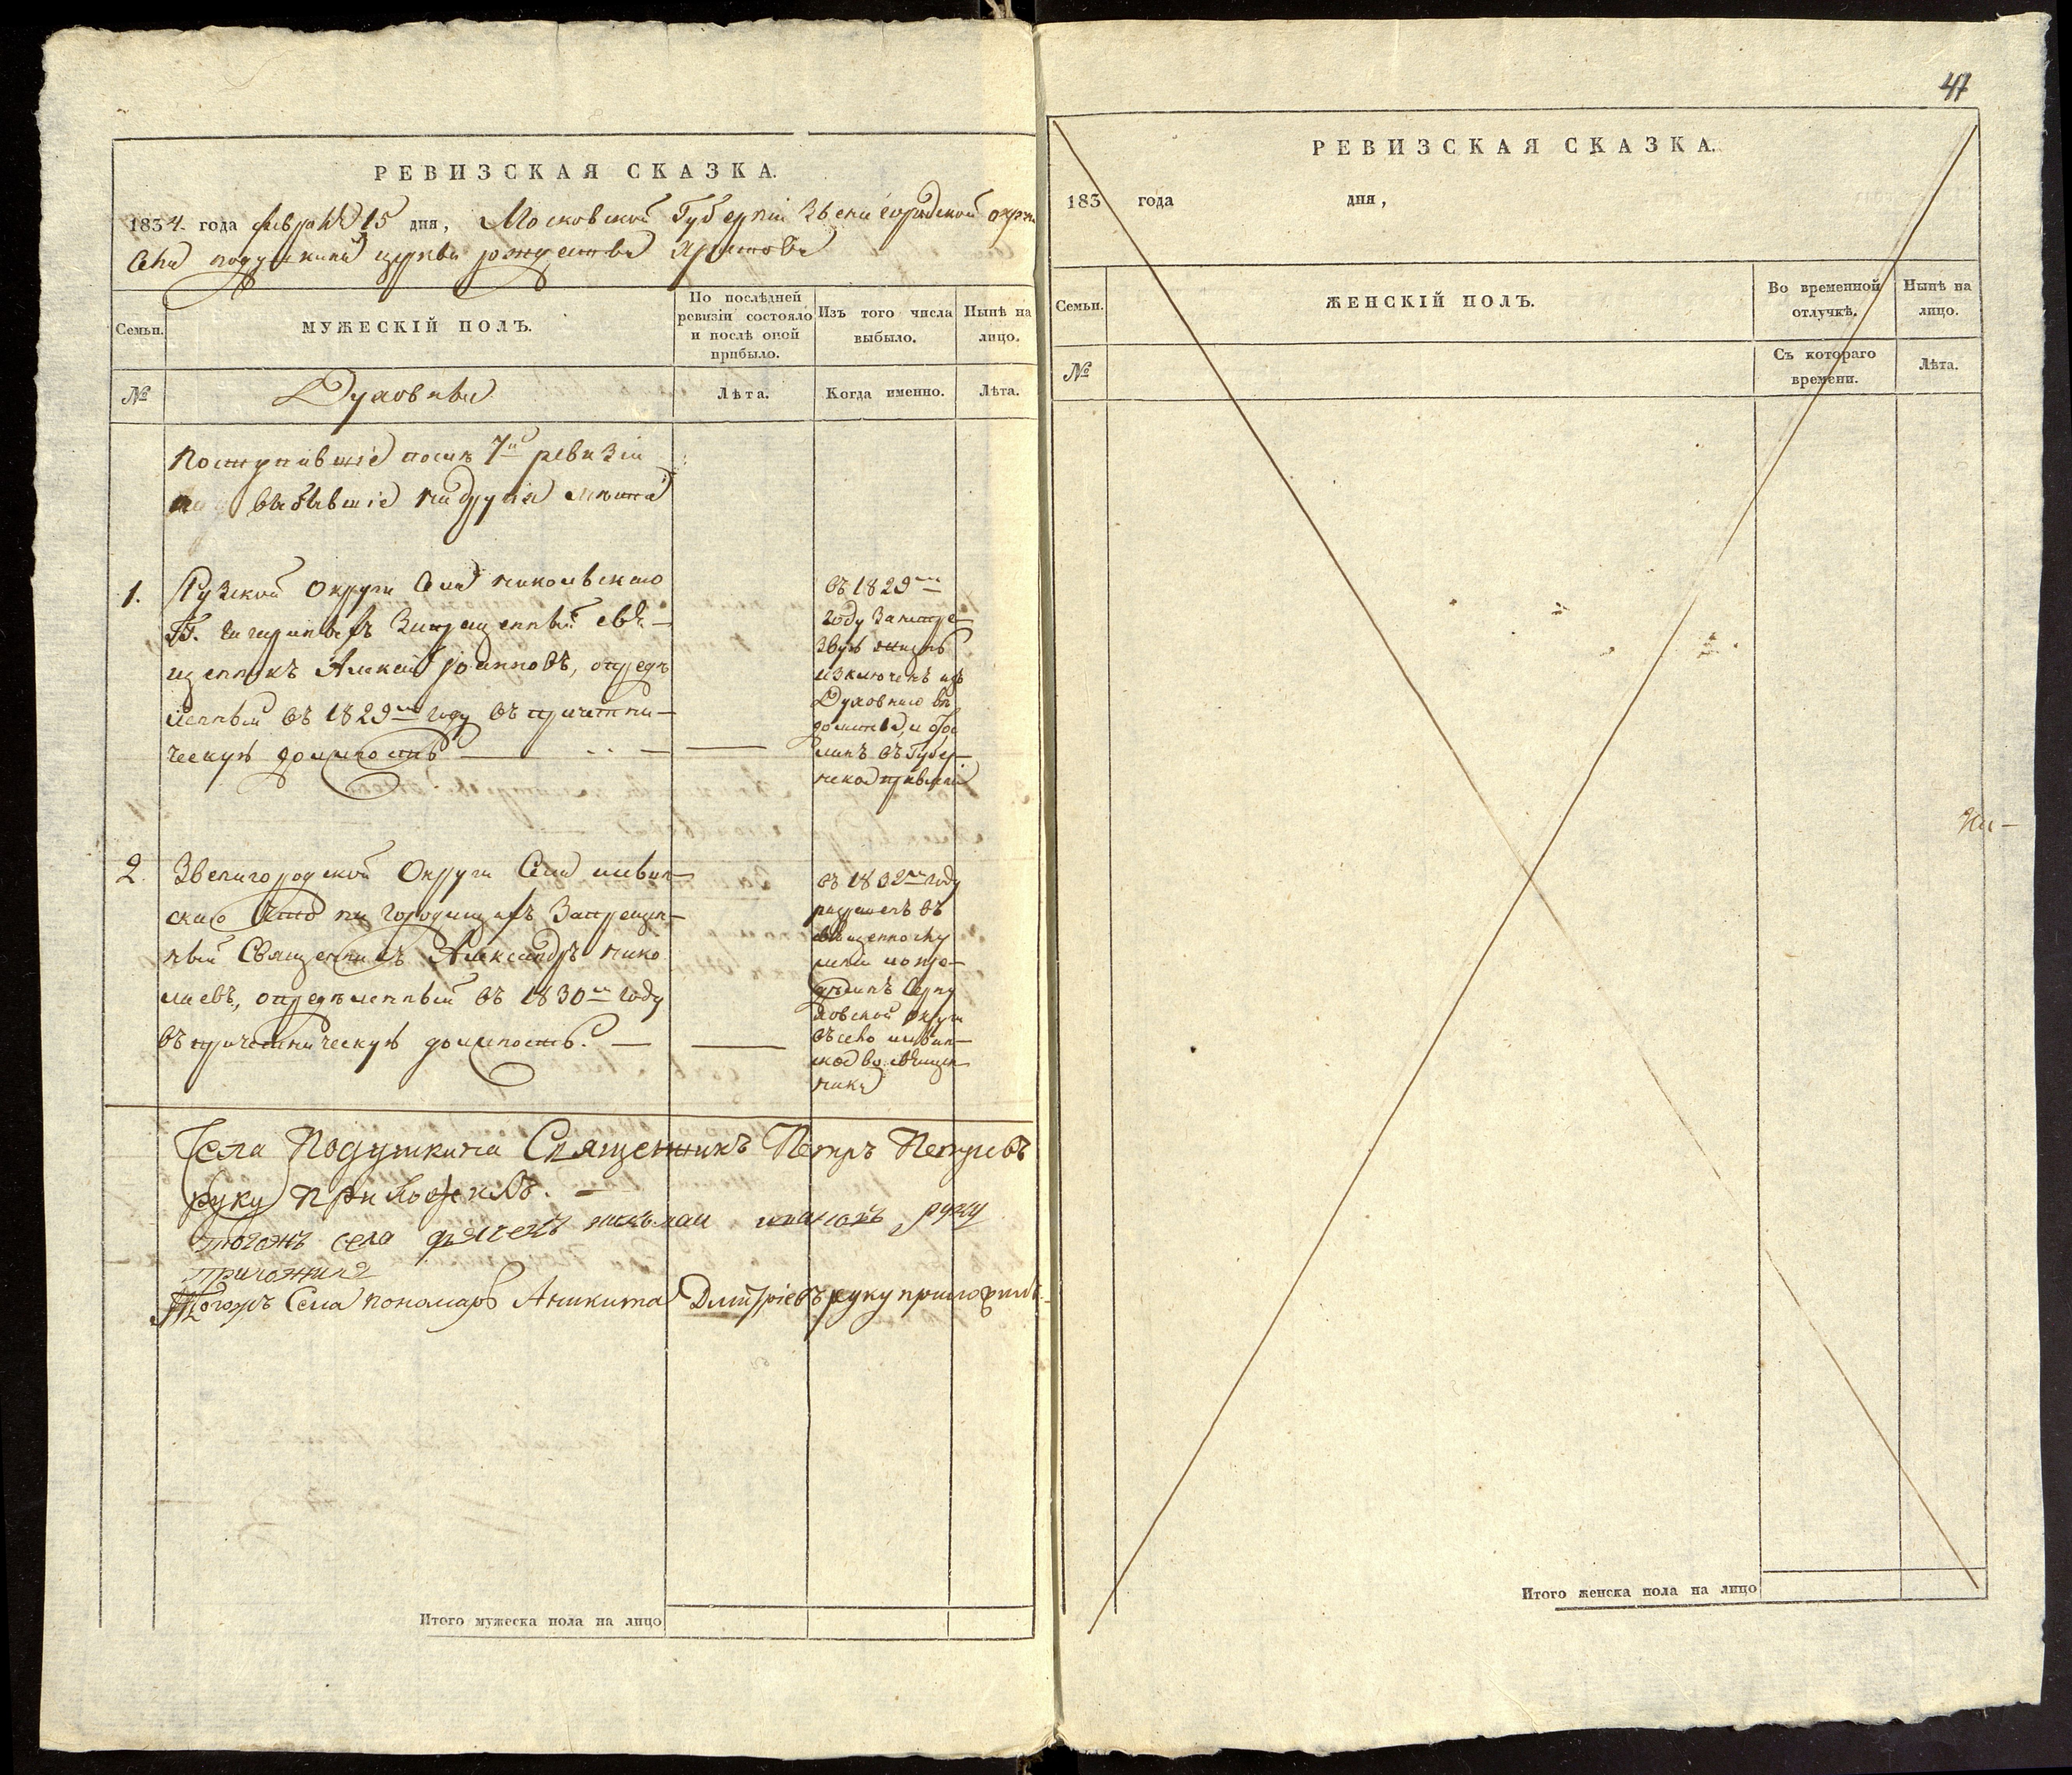 РЕВИЗСКАЯ СКАЗКА.
1834 года февраля 15 дня, Московской Губерніи Звенигородской округи
Села подушкина церкви рождества христова
Семьи.
МУЖЕСКІЙ ПОЛЪ.
По послѣдней
ревизіи состояло
и послѣ оной
прибыло.
Изъ того числа
выбыло.
Нынѣ на
лицо.
№
Духовные
Лѣта.
Когда именно.
Лѣта.
Поступившіе послѣ 7й ревизіи
выбывшіе на другія мѣста
1. Рузской Округи Села никольскаго
Г. Гагариныхъ Запрещенный свя-
щенникъ Алексѣй Іоанновъ, опредѣ
ленный въ 1829м году въ причетни-
ческую должность
въ 1829м
году за нетре-
звую жизнь
изключенъ изъ
Духовнаго вѣ
домства, и ото
сланъ въ Губер-
нское правленіе
2. Звенигородской Округи Села
скаго что на городищахъ Запрещен-
ный Священникъ Александръ нико
лаевъ, опредѣленный въ 1830м году
въ причетническую должность.
въ 1832м году
разрѣшенъ въ
священнослу
женіи и опре-
дѣленъ Серпу
ховской округи
въ село
ское во священ
ника
Села Подушкина Священникъ Петръ Петровъ
руку приложилъ.
тогожъ села дьячекъ николаи ивановъ руку
приложилъ
Тогожъ Села пономарь Аникита Дмитріевъ руку приложилъ
Итого мужеска пола на лицо
47
РЕВИЗСКАЯ СКАЗКА.
183 года дня,
Семьи.
ЖЕНСКІЙ ПОЛЪ.
Во временной
отлучкѣ.
Нынѣ на
лицо.
№
Съ котораго
времени.
Лѣта.
Итого женска пола на лицо